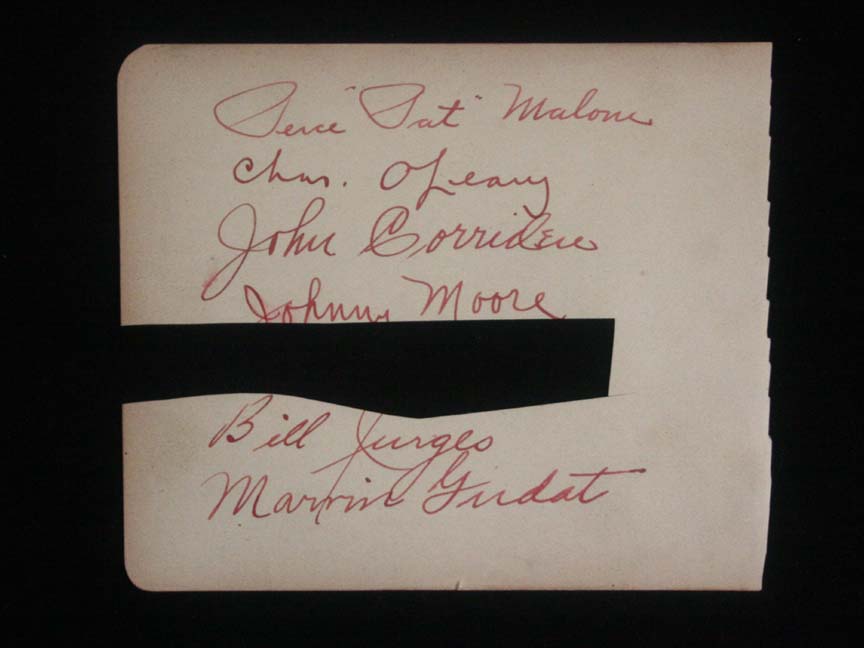 Perce "Pat" Malone
Chas. O'Leary
John Corriden
Johnny Moore
Bill Jurges
Marvin Gudat